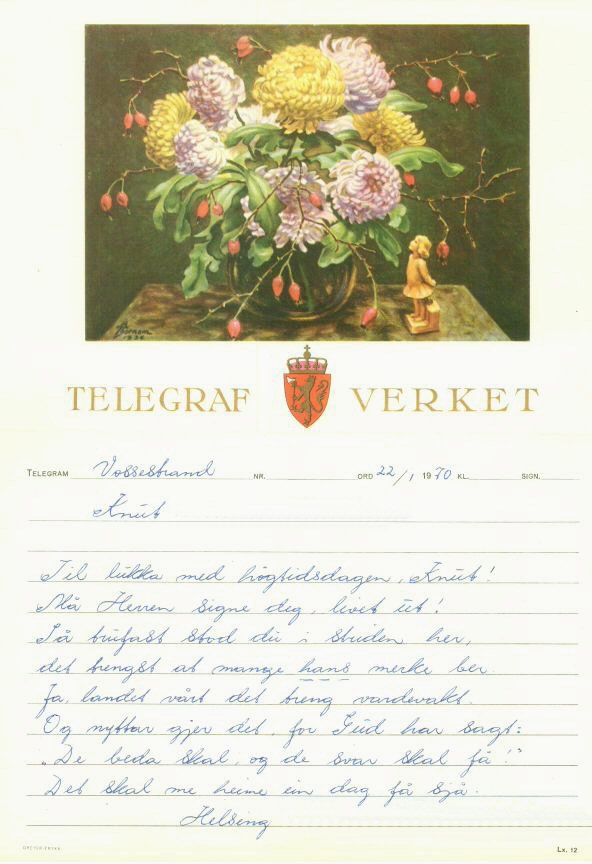 TELEGRAF VERKET
TELEGRAM Vossestrand NR. ORD 22/1 1970 KL. SIGN.
Knut
Til lukka med høgtidsdagen, Knut!
Må Herren signe deg, livet ut!
Så trufast stod du i striden her,
det trengst at mange hans merke ber.
Ja, landet vårt det treng vardevakt.
Og nyttar gjer det, for Gud har sagt:
"De beda skal, og de svar skal få!"
Det skal me heime ein dag få sjå.
Helsing
Lx. 12